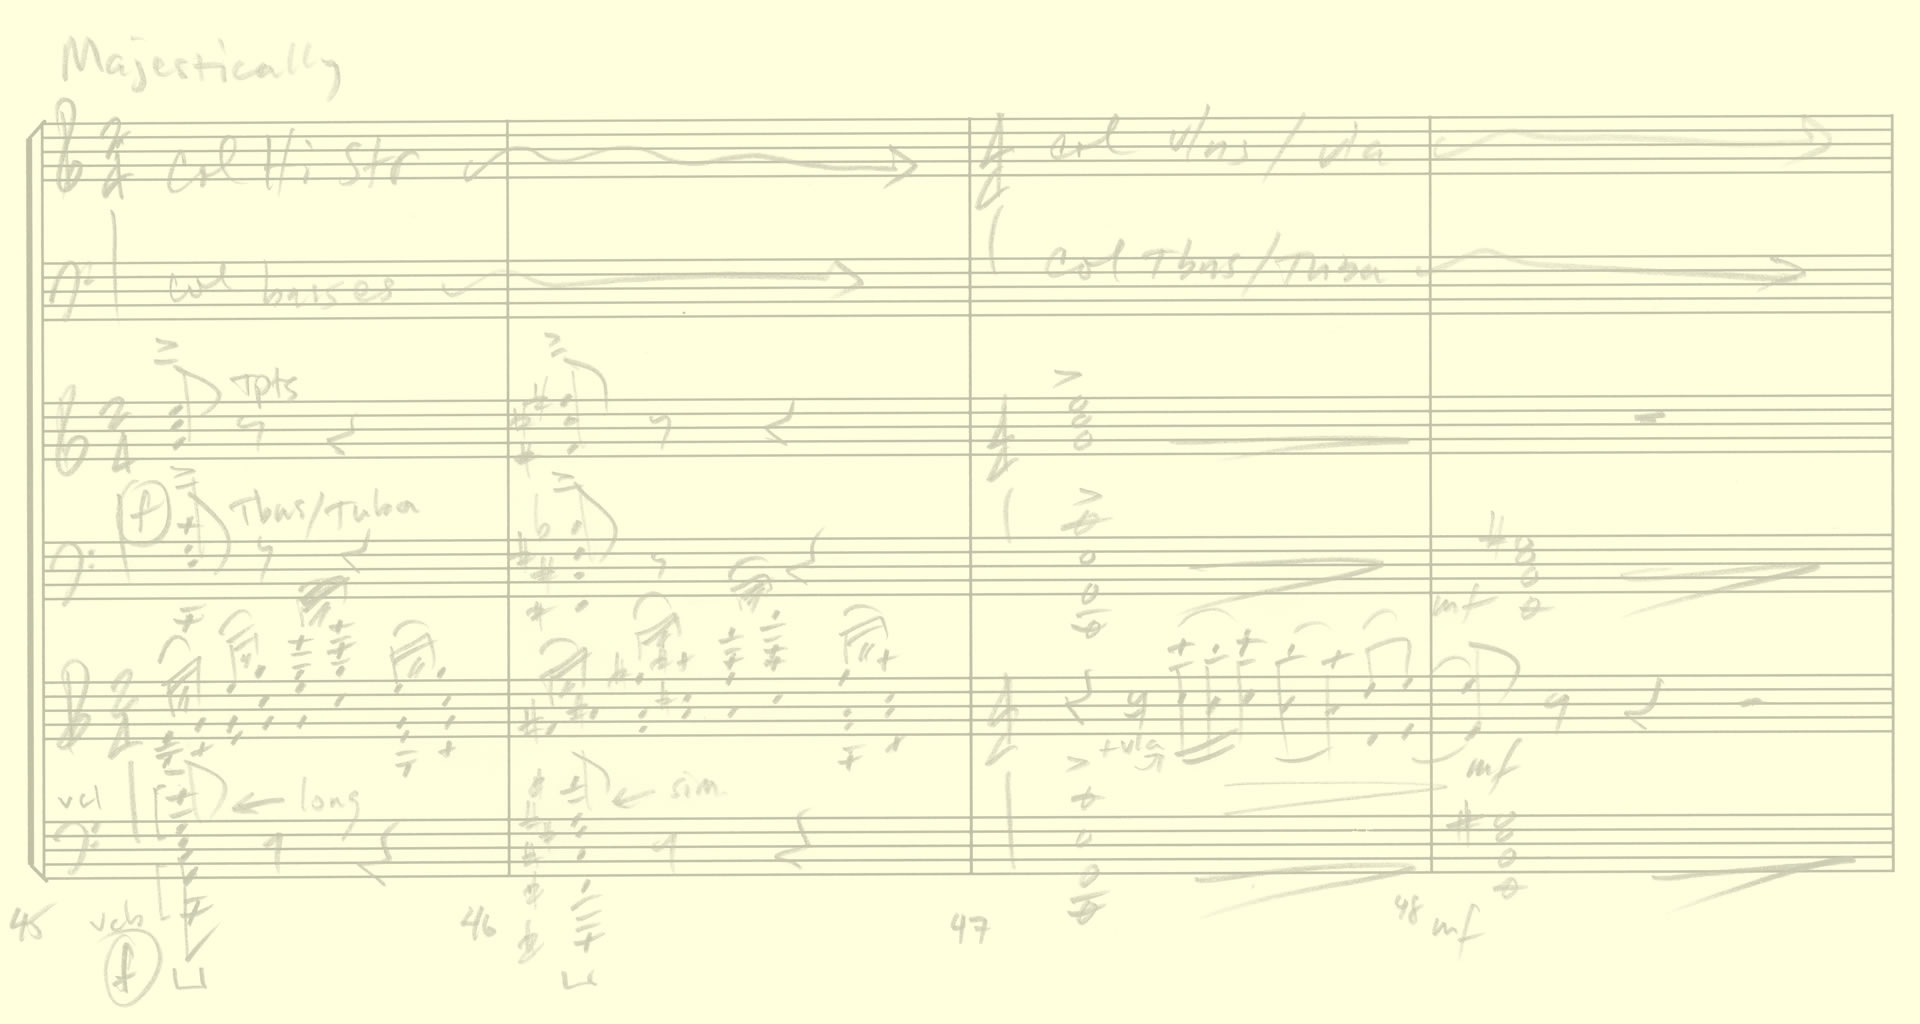 Majestically
col Hi Str
col vlns / vla
col basses
col Tbns/Tuba
Tpts
f Tbns/Tuba
mf
+vla
mf
vcl
long
sim.
45
vcb
46
47
48
mf
f